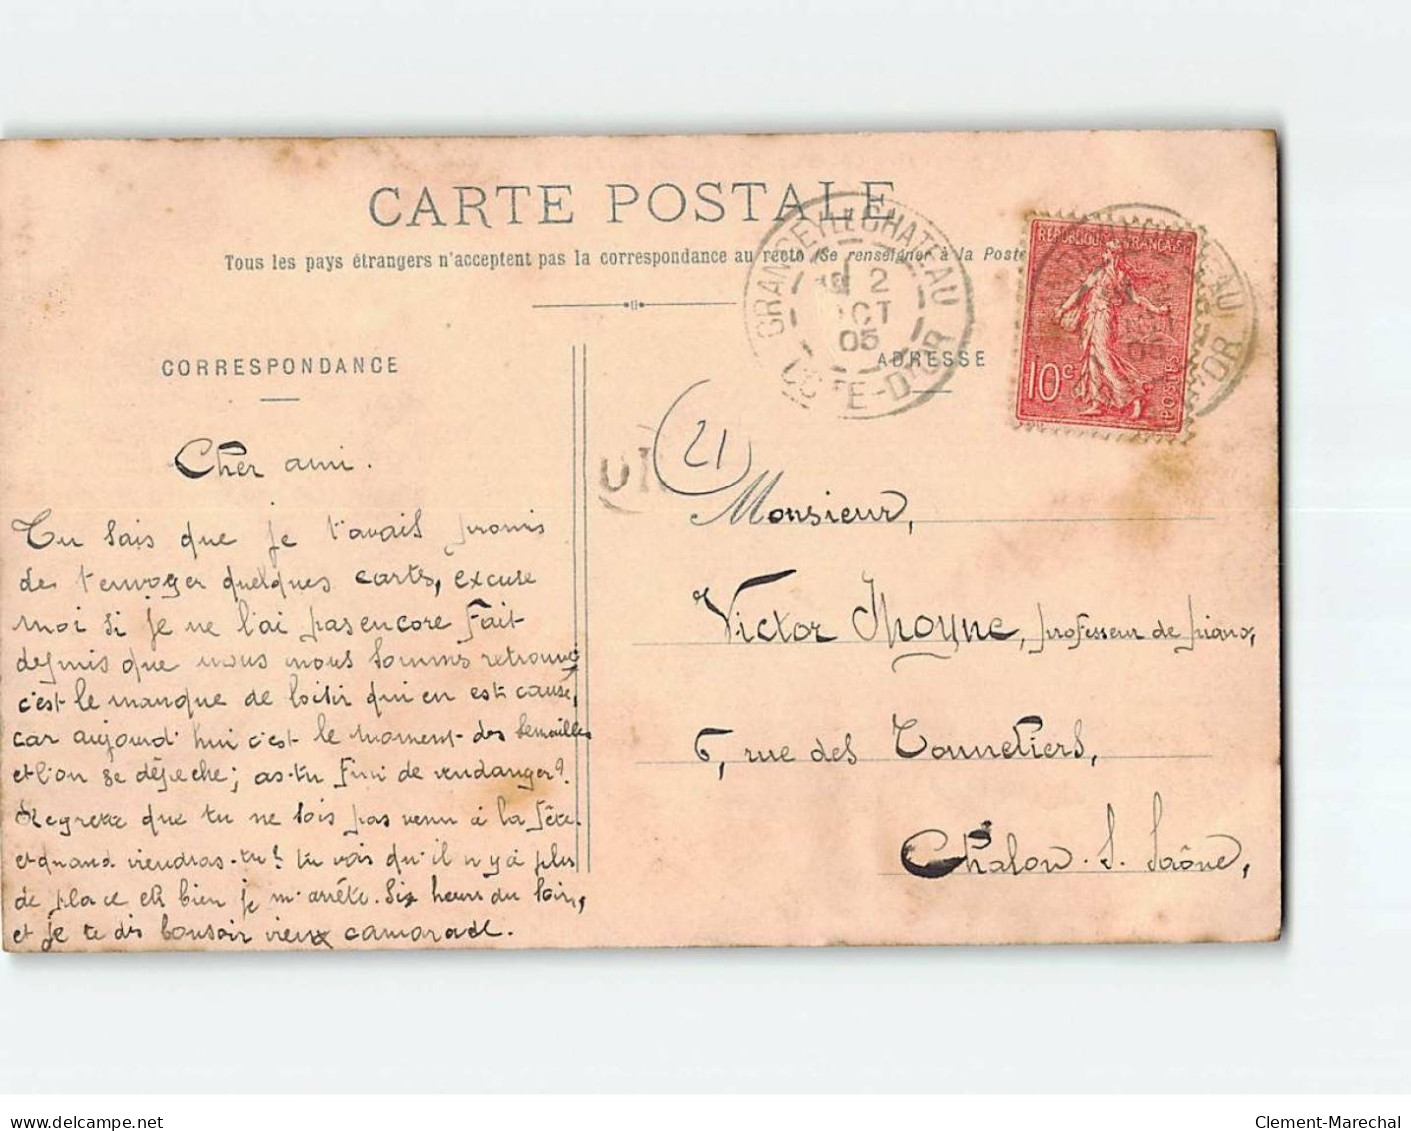 CARTE POSTALE
Tous les pays étrangers n'acceptent pas la correspondance au recto (Se renseigner à la Poste
GRANCEY-LE-CHATEAU
2
OCT
05
COTE-D'OR
REPUBLIQUE FRANÇAISE
10c
POSTES
CORRESPONDANCE
ADRESSE
21
Cher ami.
Tu sais que je t'avais promis
de t'envoyer quelques carts, excuse
moi si je ne l'ai pas encore fait
depuis que nous nous sommes retrouvé
c'est le manque de loisir qui en est cause,
car aujourd'hui c'est le moment des semailles
et l'on se dépeche; as-tu fini de vendanger?
Regrette que tu ne sois pas venu à la fête.
et quand viendras-tu? tu vois qu'il n'y à plus
de place eh bien je m'arrête. Six heurs du soir,
et je te dis bonsoir vieux camarade.
Monsieur,
Victor Moyne, professeur de piano,
6, rue des Tonneliers,
Châlon. S. Saône,
Clement-Marechal